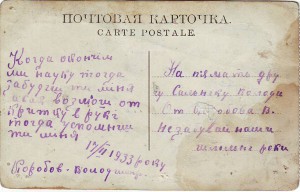 ПОЧТОВАЯ КАРТОЧКА.
CARTE POSTALE.
Когда окончим
ми науку тогда
забудеш ти миня
а как возмёш от
критку в руки
тогда успомни
ти миня
17/II 1933 року
Коробов
На память дру
гу
От Коробова В.
Незабувай наши
школьне роки